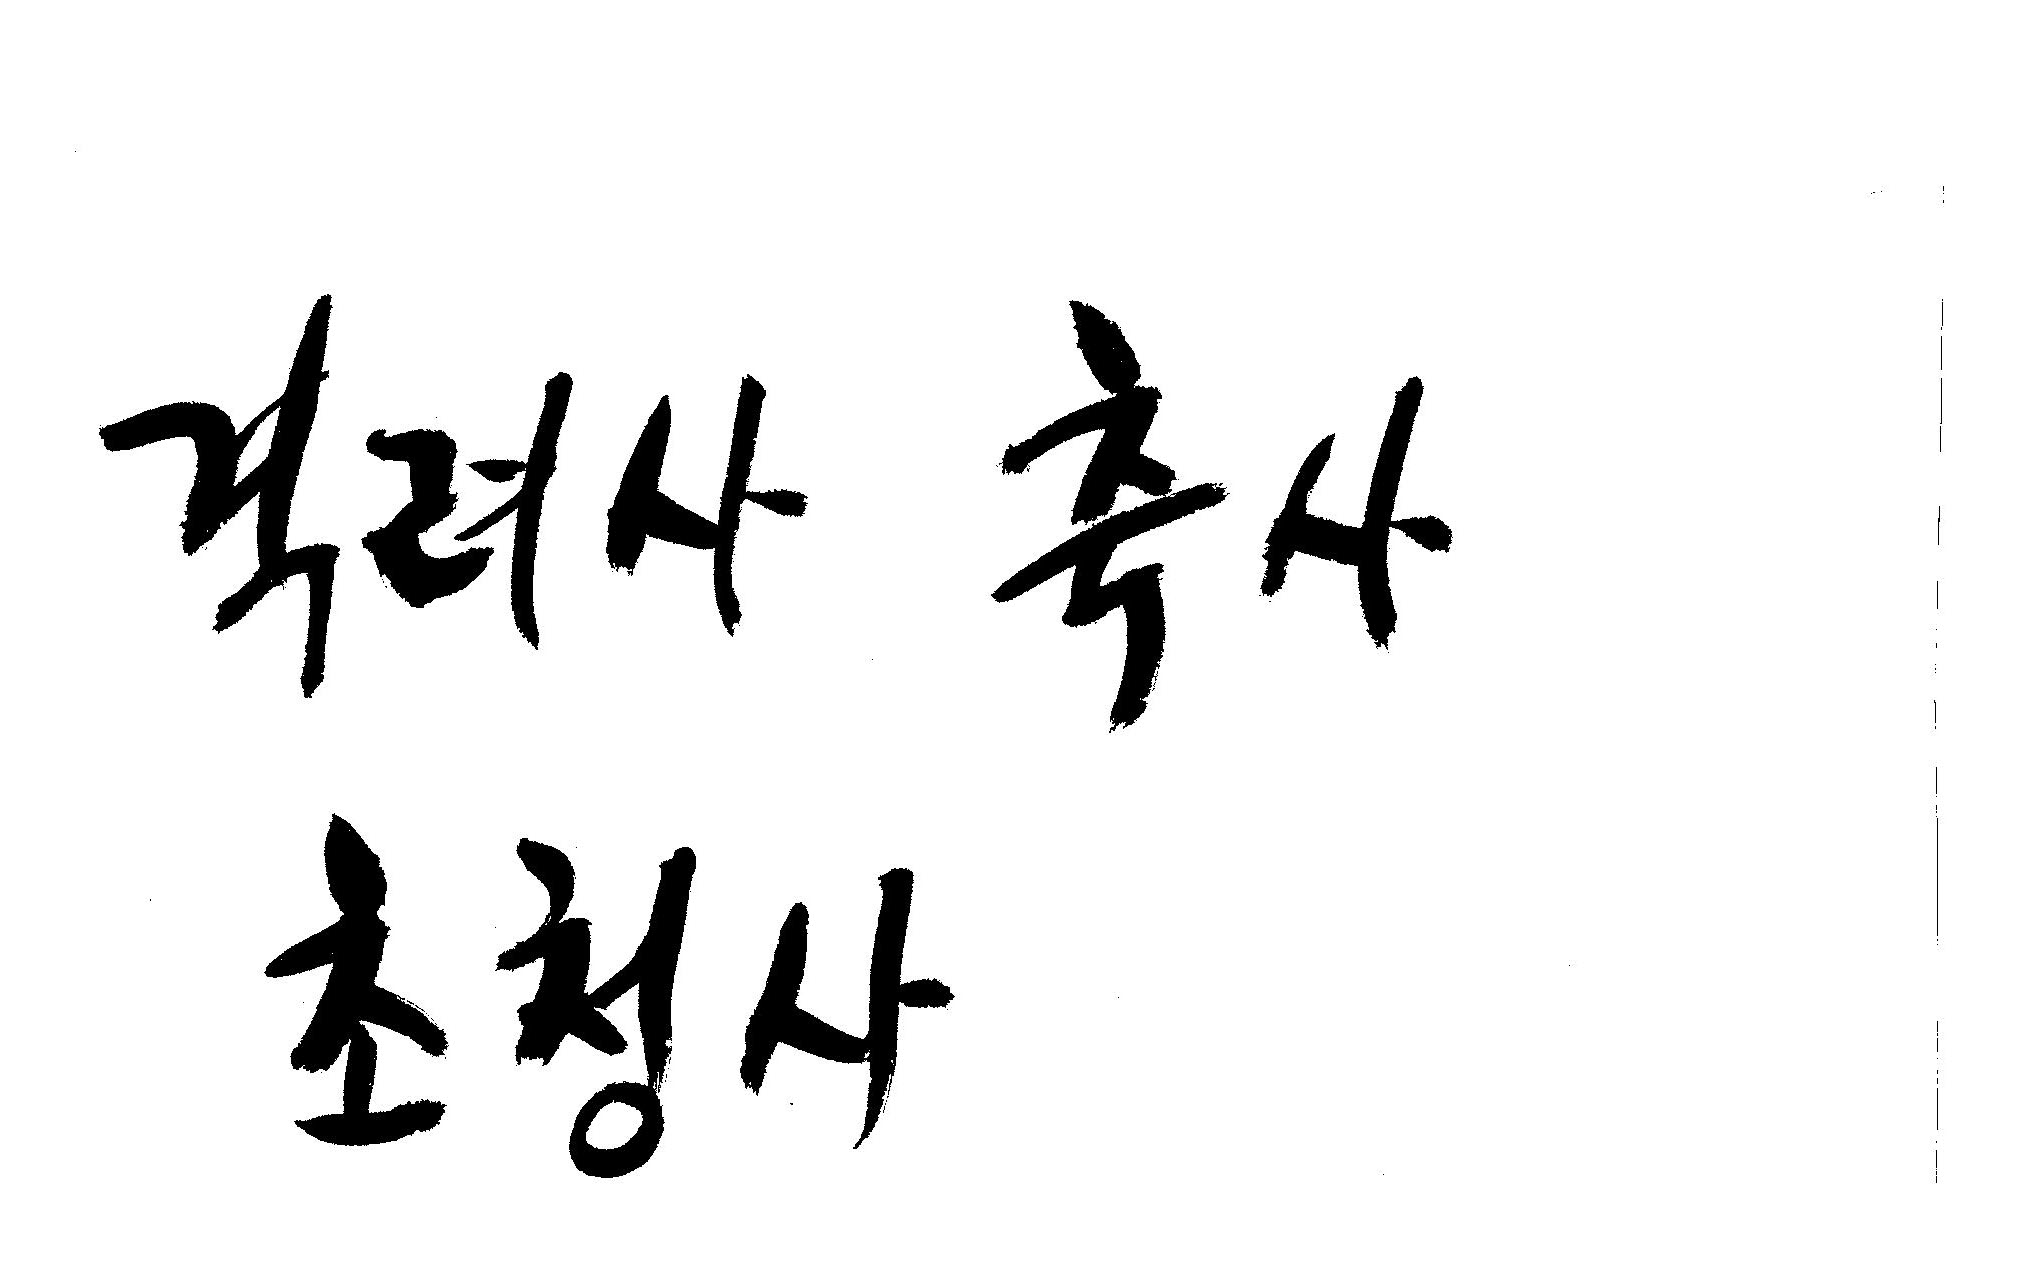 격려사 축사
초청사